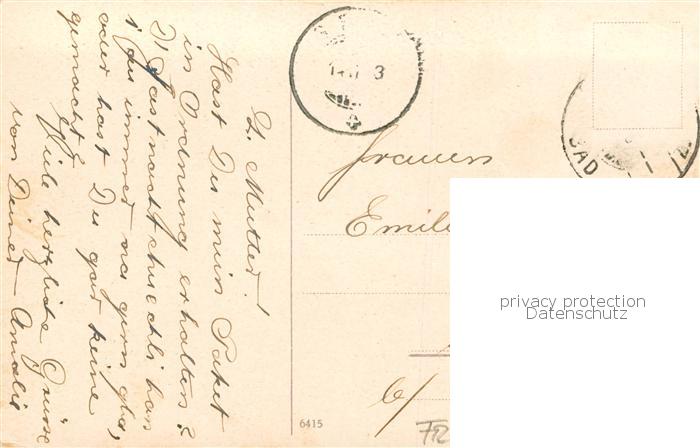 L. Mutter!
Hast Du mein Paket
in Ordnung erhalten?
D' Fastnachtchüechli han
i für immer no gern gha,
oder hast Du gar keine
gemacht?
Viele herzliche Grüsse
von Deiner Amalie
Frauen
Emil
b/
6415
BAD
privacy protection
Datenschutz